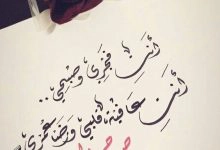 أنتِ فجري وصبحي..
أنتِ عافية قلبي ورضا عمري